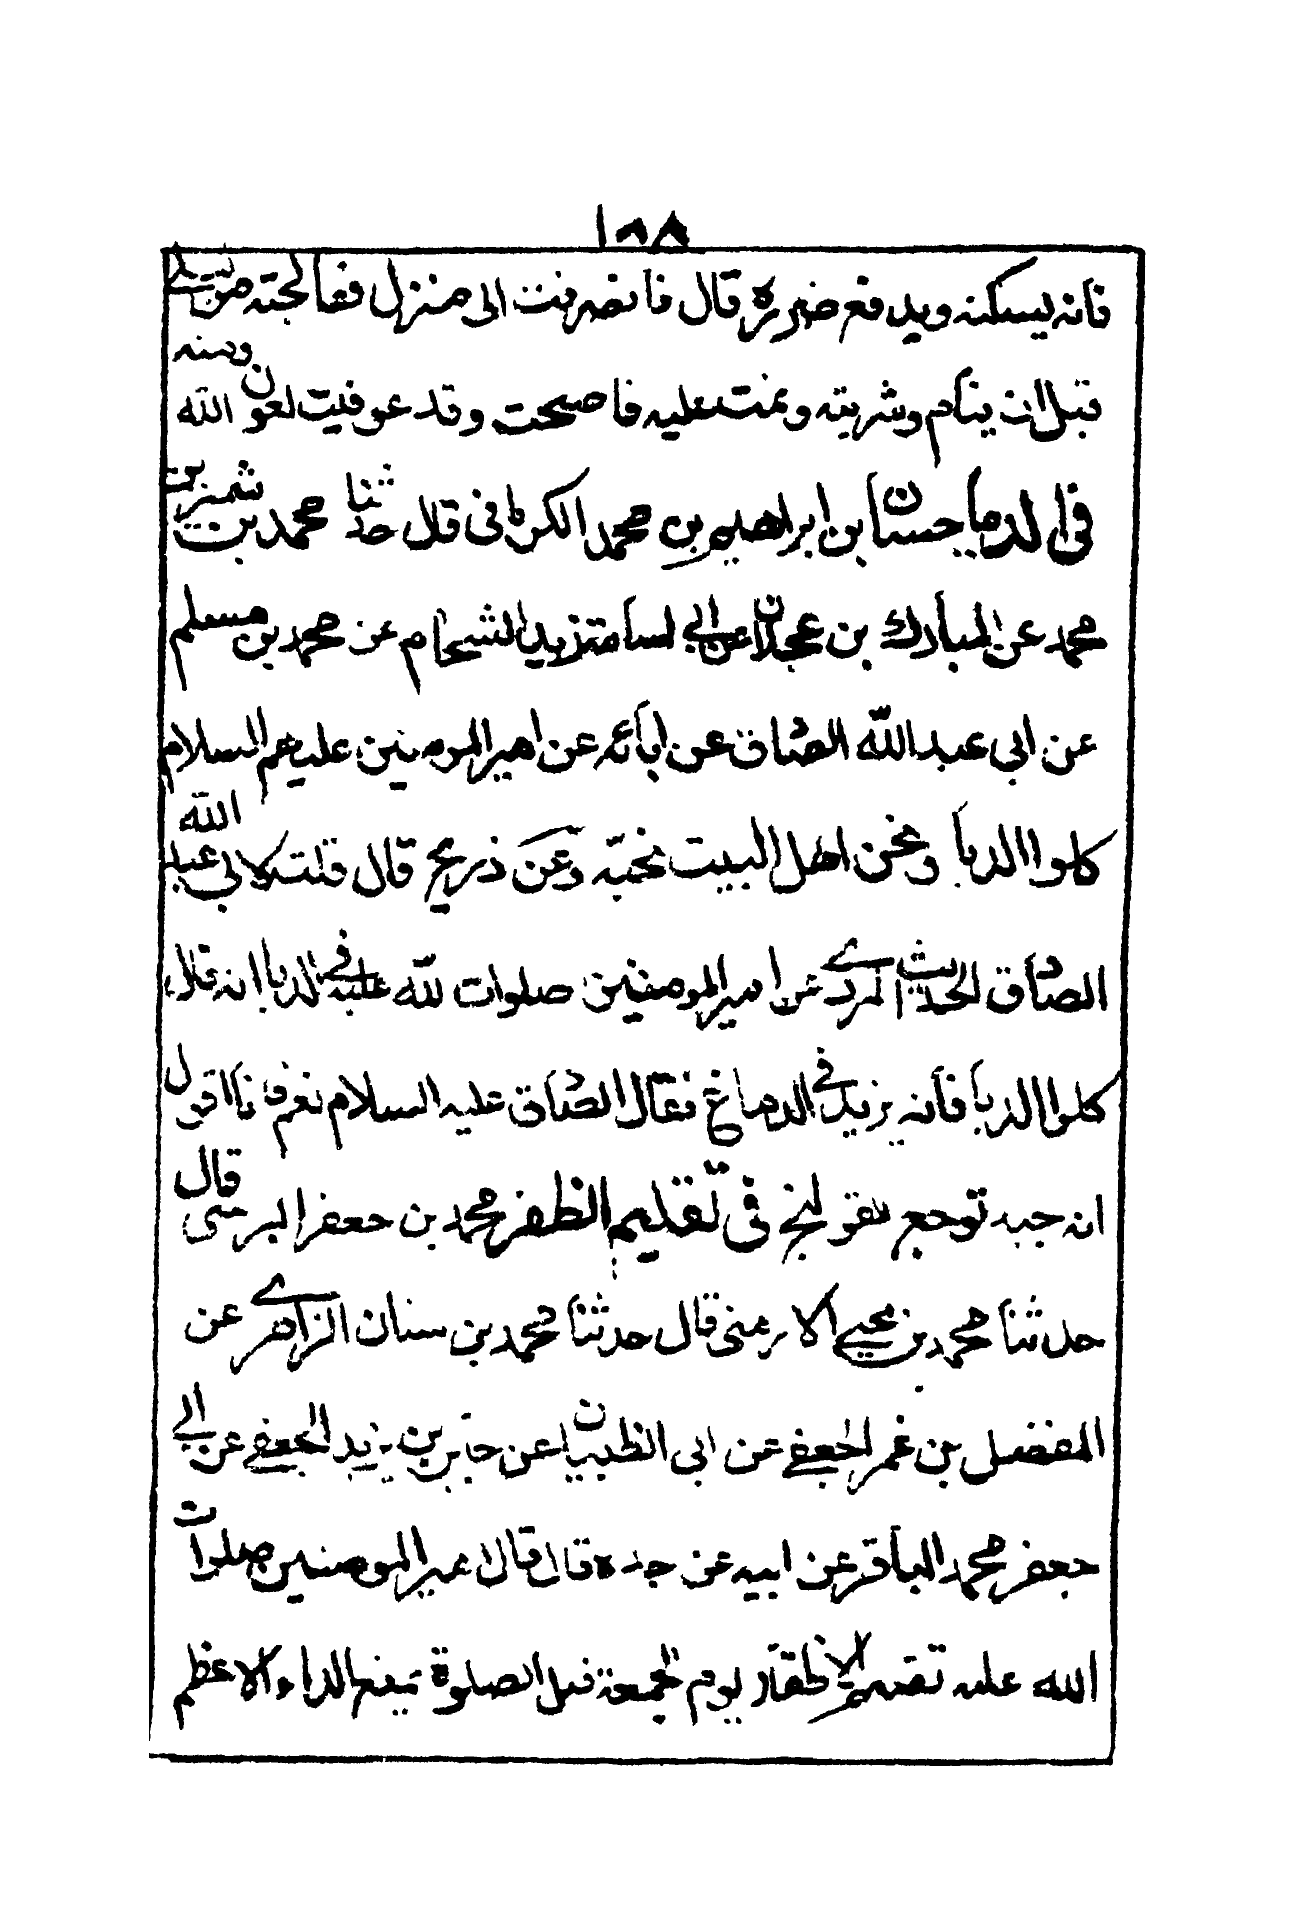 ١٣٨
فانه يسكنه ويدفع ضيره قال فانصرفت الى منزلي فعالجته من ليلتي
قبل ان ينام وشربته ونمت عليه فاصبحت وقد عوفيت بعون الله ومنه
في الدبا حسان بن ابراهيم بن محمد الكرماني قال حدثنا محمد بن نمير بن
محمد عن المبارك بن عجلان عن ابي اسامة زيد الشحام عن محمد بن مسلم
عن ابي عبد الله الصادق عن ابائه عن امير المومنين عليهم السلام
كلوا الدبا ونحن اهل البيت نحبه وعن ذريح قال قلت لابي عبد الله
الصادق الحديث المروي عن امير المومنين صلوات الله عليه في الدبا انه قال
كلوا الدبا فانه يزيد في الدماغ فقال الصادق عليه السلام نعم فانا اقول
انه جيد لوجع القولنج في تقليم الظفر محمد بن جعفر البرسي قال
حدثنا محمد بن يحيى الارمني قال حدثنا محمد بن سنان الزاهري عن
المفضل بن عمر الجعفي عن ابي الظبيان عن جابر بن يزيد الجعفي عن ابي
جعفر محمد الباقر عن ابيه عن جده قال قال امير المومنين صلوات
الله عليه تقليم الاظفار يوم الجمعة قبل الصلوة يمنع الداء الاعظم